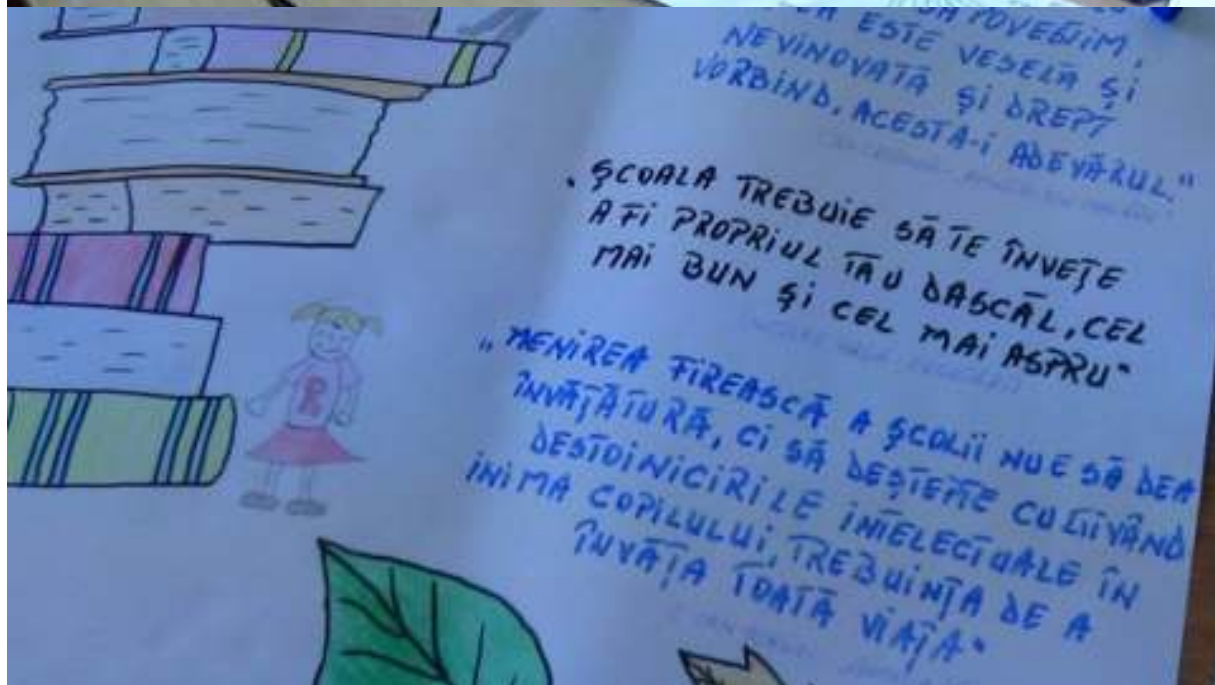 POVESTIM,
ESTE VESELĂ ŞI
NEVINOVATĂ ŞI DREPT
VORBIND, ACESTA-I ADEVĂRUL."
„ŞCOALA TREBUIE SĂ TE ÎNVEŢE
A FI PROPRIUL TĂU DASCĂL, CEL
MAI BUN ŞI CEL MAI ASPRU"
„MENIREA FIREASCĂ A ŞCOLII NU E SĂ DEA
ÎNVĂŢĂTURĂ, CI SĂ DEŞTEPTE CULTIVÂND
DESTOINICIRILE INTELECTUALE ÎN
INIMA COPILULUI, TREBUINŢA DE A
ÎNVĂŢA TOATĂ VIAŢA"
R